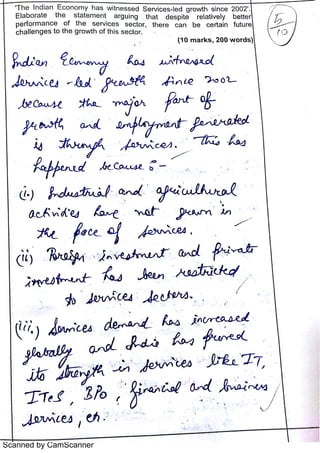 'The Indian Economy has witnessed Services-led growth since 2002'.
Elaborate the statement arguing that despite relatively better
performance of the services sector, there can be certain future
challenges to the growth of this sector.
(10 marks, 200 words)
5
10
Indian Economy has witnessed
services-led growth since 2002
because the major part of
growth and employment generated
is through services. This has
happened because :-
(i.) Industrial and agricultural
activities have not grown in
the pace of services.
(ii) Foreign investment and private
investment has been restricted
to services sectors.
(iii.) Services demand has increased
globally and India has proved
its strength in services like IT,
ITeS, BPO, financial and business
services, etc.
Scanned by CamScanner